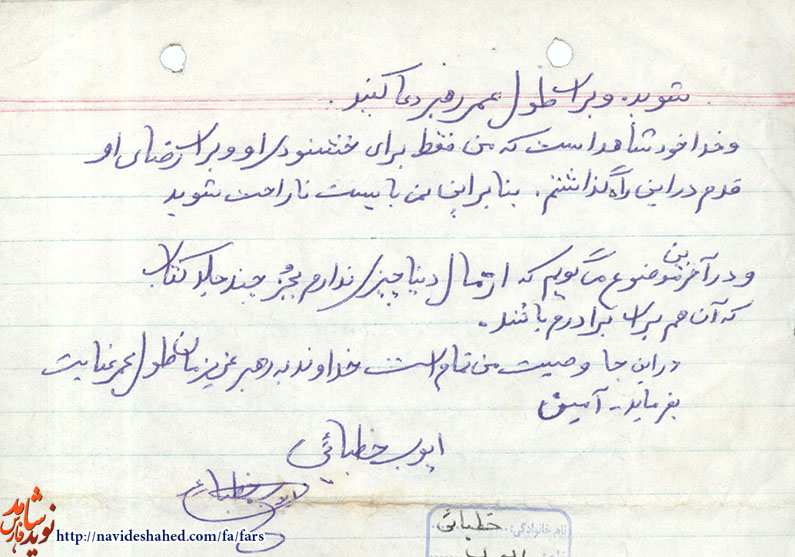 شوید. و برای طول عمر رهبر دعا کنید.
و خدا خود شاهد است که من فقط برای خشنودی او و برای رضای او
قدم در این راه گذاشتم. بنابراین نمی بایست ناراحت شوید
و در آخرین موضوع می گویم که از مال دنیا چیزی ندارم بجز چند جلد کتاب
که آن هم برای برادرم باشند.
در این جا وصیت من تمام است خداوند به رهبر عزیزمان طول عمر عنایت
بفرماید - آمین
ایوب خطبائی
ایوب خطبائی
نام خانوادگی: خطبائی
نوید شاهد فارس
http://navideshahed.com/fa/fars